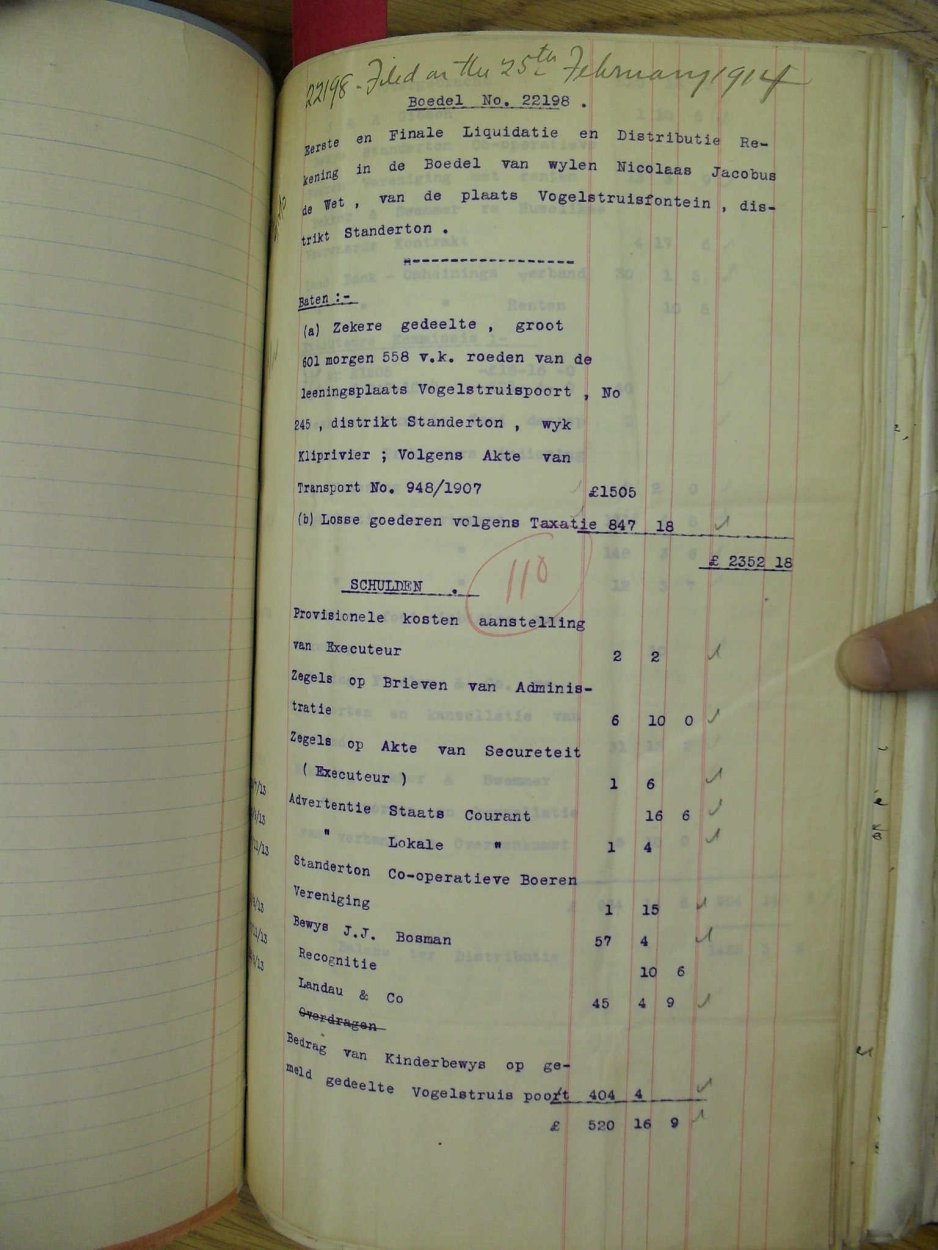 22198 - Filed on the 25th February 1914
Boedel No. 22198 .
Eerste en Finale Liquidatie en Distributie Re-
kening in de Boedel van wylen Nicolaas Jacobus
de Wet , van de plaats Vogelstruisfontein , dis-
trikt Standerton .
Baten :-
(a) Zekere gedeelte , groot
601 morgen 558 v.k. roeden van de
leeningsplaats Vogelstruispoort , No
245 , distrikt Standerton , wyk
Kliprivier ; Volgens Akte van
Transport No. 948/1907 £1505
(b) Losse goederen volgens Taxatie 847 18
£ 2352 18
110
SCHULDEN .
Provisionele kosten aanstelling
van Executeur 2 2
Zegels op Brieven van Adminis-
tratie 6 10 0
Zegels op Akte van Secureteit
( Executeur ) 1 6
Advertentie Staats Courant 16 6
" Lokale " 1 4
Standerton Co-operatieve Boeren
Vereniging 1 15
Bewys J.J. Bosman 57 4
Recognitie 10 6
Landau & Co 45 4 9
Overdragen
Bedrag van Kinderbewys op ge-
meld gedeelte Vogelstruis poort 404 4
£ 520 16 9